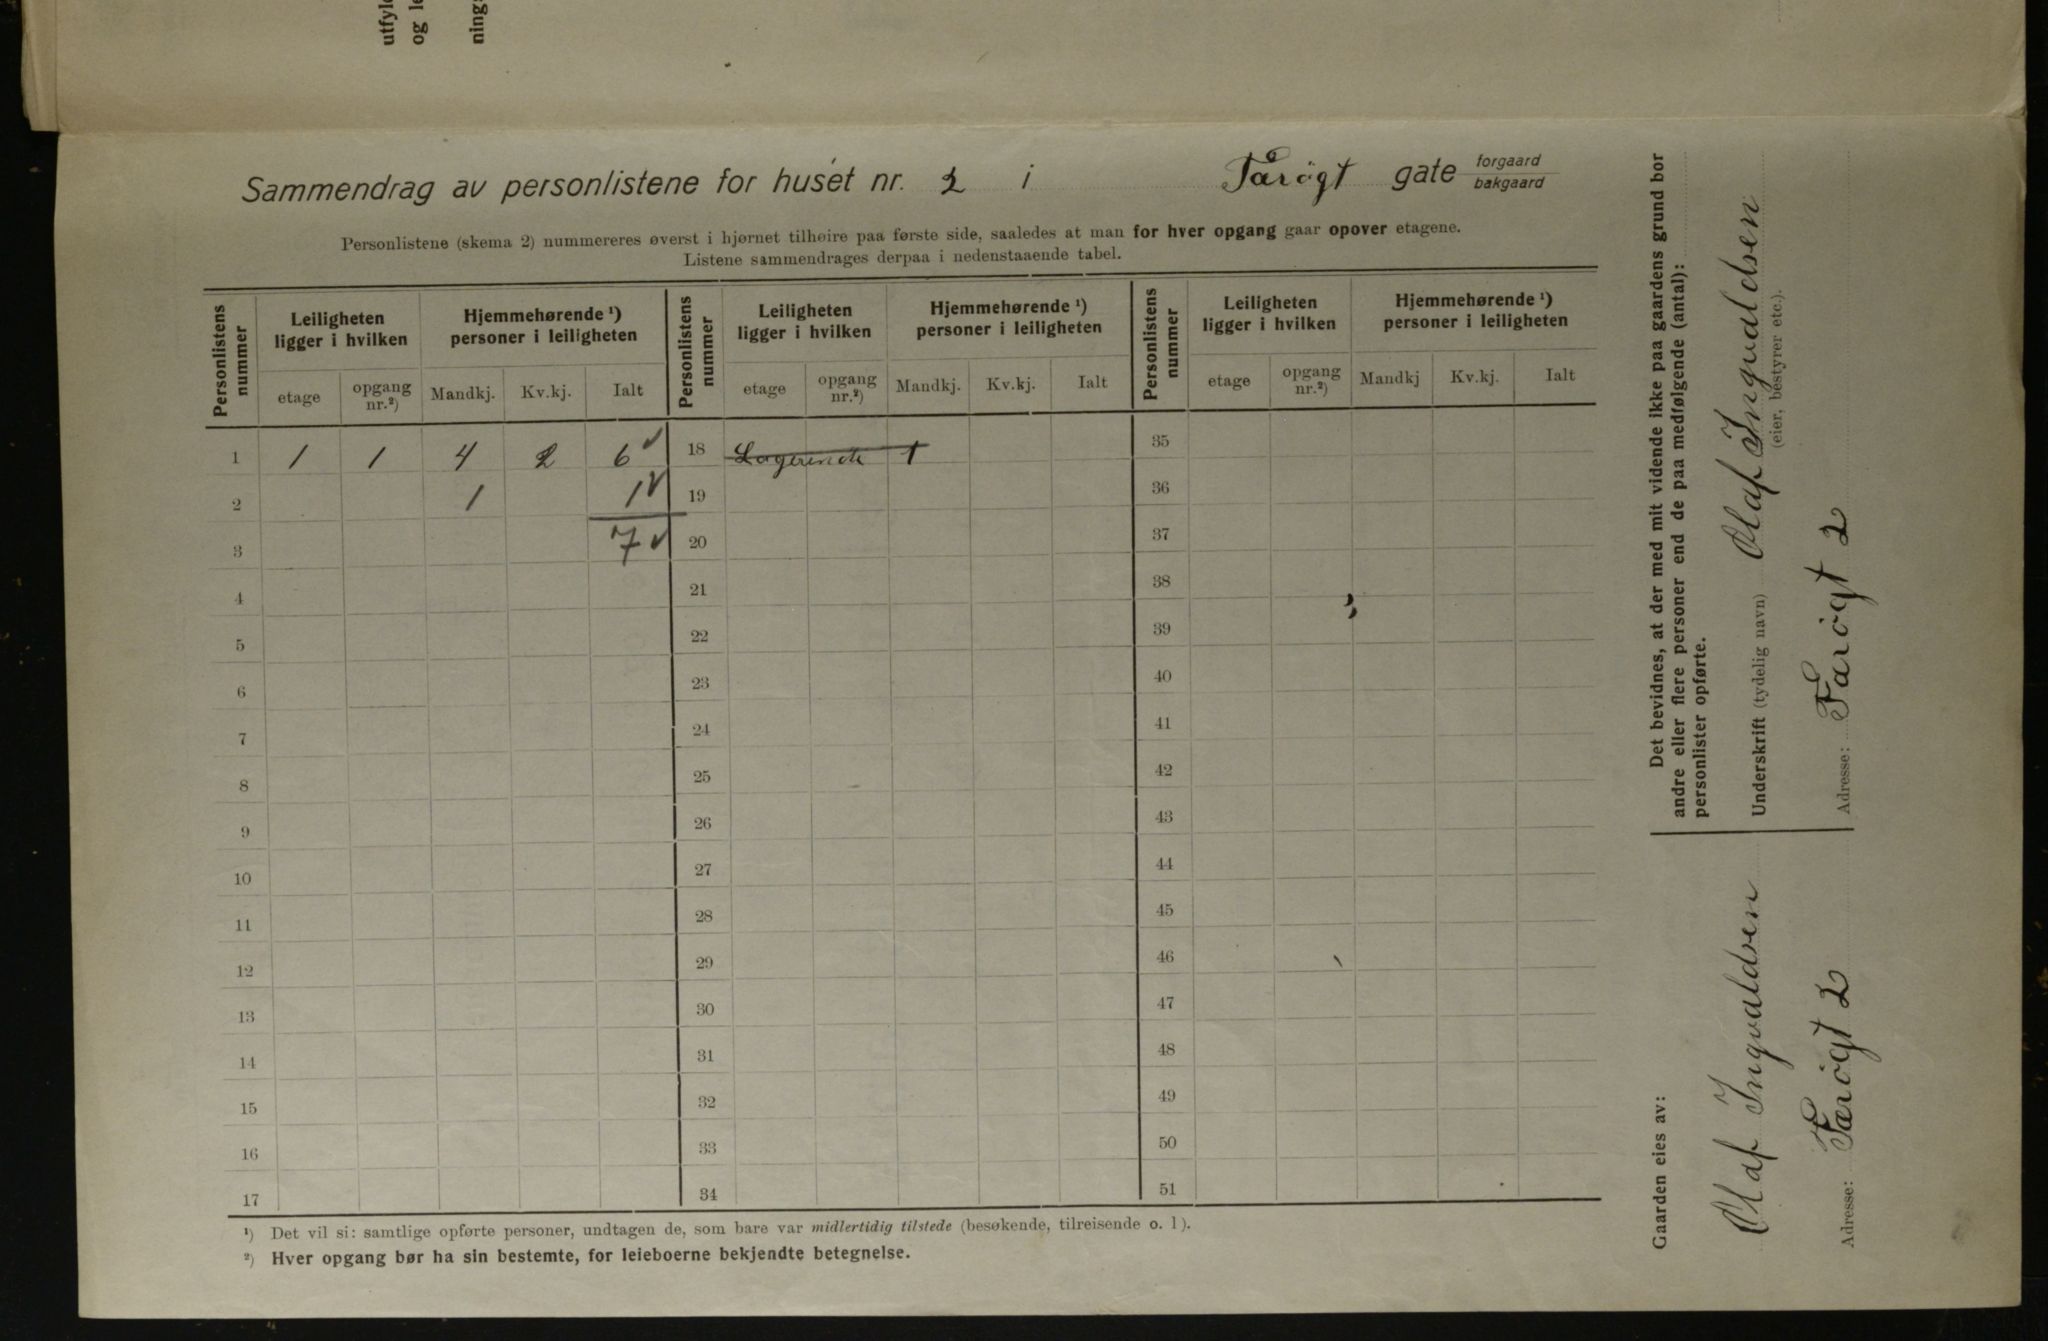 utfyl
og le
ning
Sammendrag av personlistene for huset nr. 2 i Færøgt gate forgaard bakgaard
Personlistene (skema 2) nummereres øverst i hjørnet tilhøire paa første side, saaledes at man for hver opgang gaar opover etagene.
Listene sammendrages derpaa i nedenstaaende tabel.
Personlistens nummer Leiligheten ligger i hvilken Hjemmehørende ¹) personer i leiligheten Personlistens nummer Leiligheten ligger i hvilken Hjemmehørende ¹) personer i leiligheten Personlistens nummer Leiligheten ligger i hvilken Hjemmehørende ¹) personer i leiligheten
etage opgang nr.²) Mandkj. Kv.kj. Ialt etage opgang nr.²) Mandkj. Kv.kj. Ialt etage opgang nr.²) Mandkj Kv.kj. Ialt
1 1 1 4 2 6 18 1 35
2 1 1 19 36
3 7 20 37
4 21 38
5 22 39
6 23 40
7 24 41
8 25 42
9 26 43
10 27 44
11 28 45
12 29 46
13 30 47
14 31 48
15 32 49
16 33 50
17 34 51
¹) Det vil si: samtlige opførte personer, undtagen de, som bare var midlertidig tilstede (besøkende, tilreisende o. l).
²) Hver opgang bør ha sin bestemte, for leieboerne bekjendte betegnelse.
Det bevidnes, at der med mit vidende ikke paa gaardens grund bor
andre eller flere personer end de paa medfølgende (antal):
personlister opførte.
Underskrift (tydelig navn) Olaf Ingvaldsen
(eier, bestyrer etc.).
Adresse: Færøgt 2
Gaarden eies av:
Olaf Ingvaldsen
Adresse: Færøgt 2